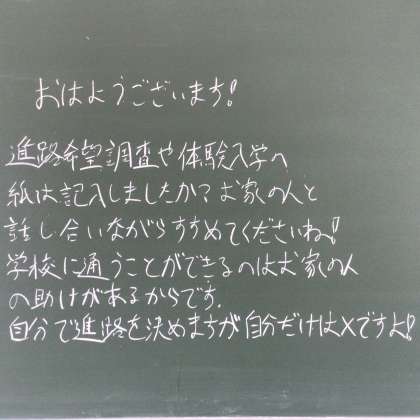 おはようございます!
進路希望調査や体験入学へ
紙は記入しましたか?お家の人と
話し合いながらすすめてくださいね!
学校に通うことができるのはお家の人
の助けがあるからです.
自分で進路を決めますが自分だけは×ですよ!